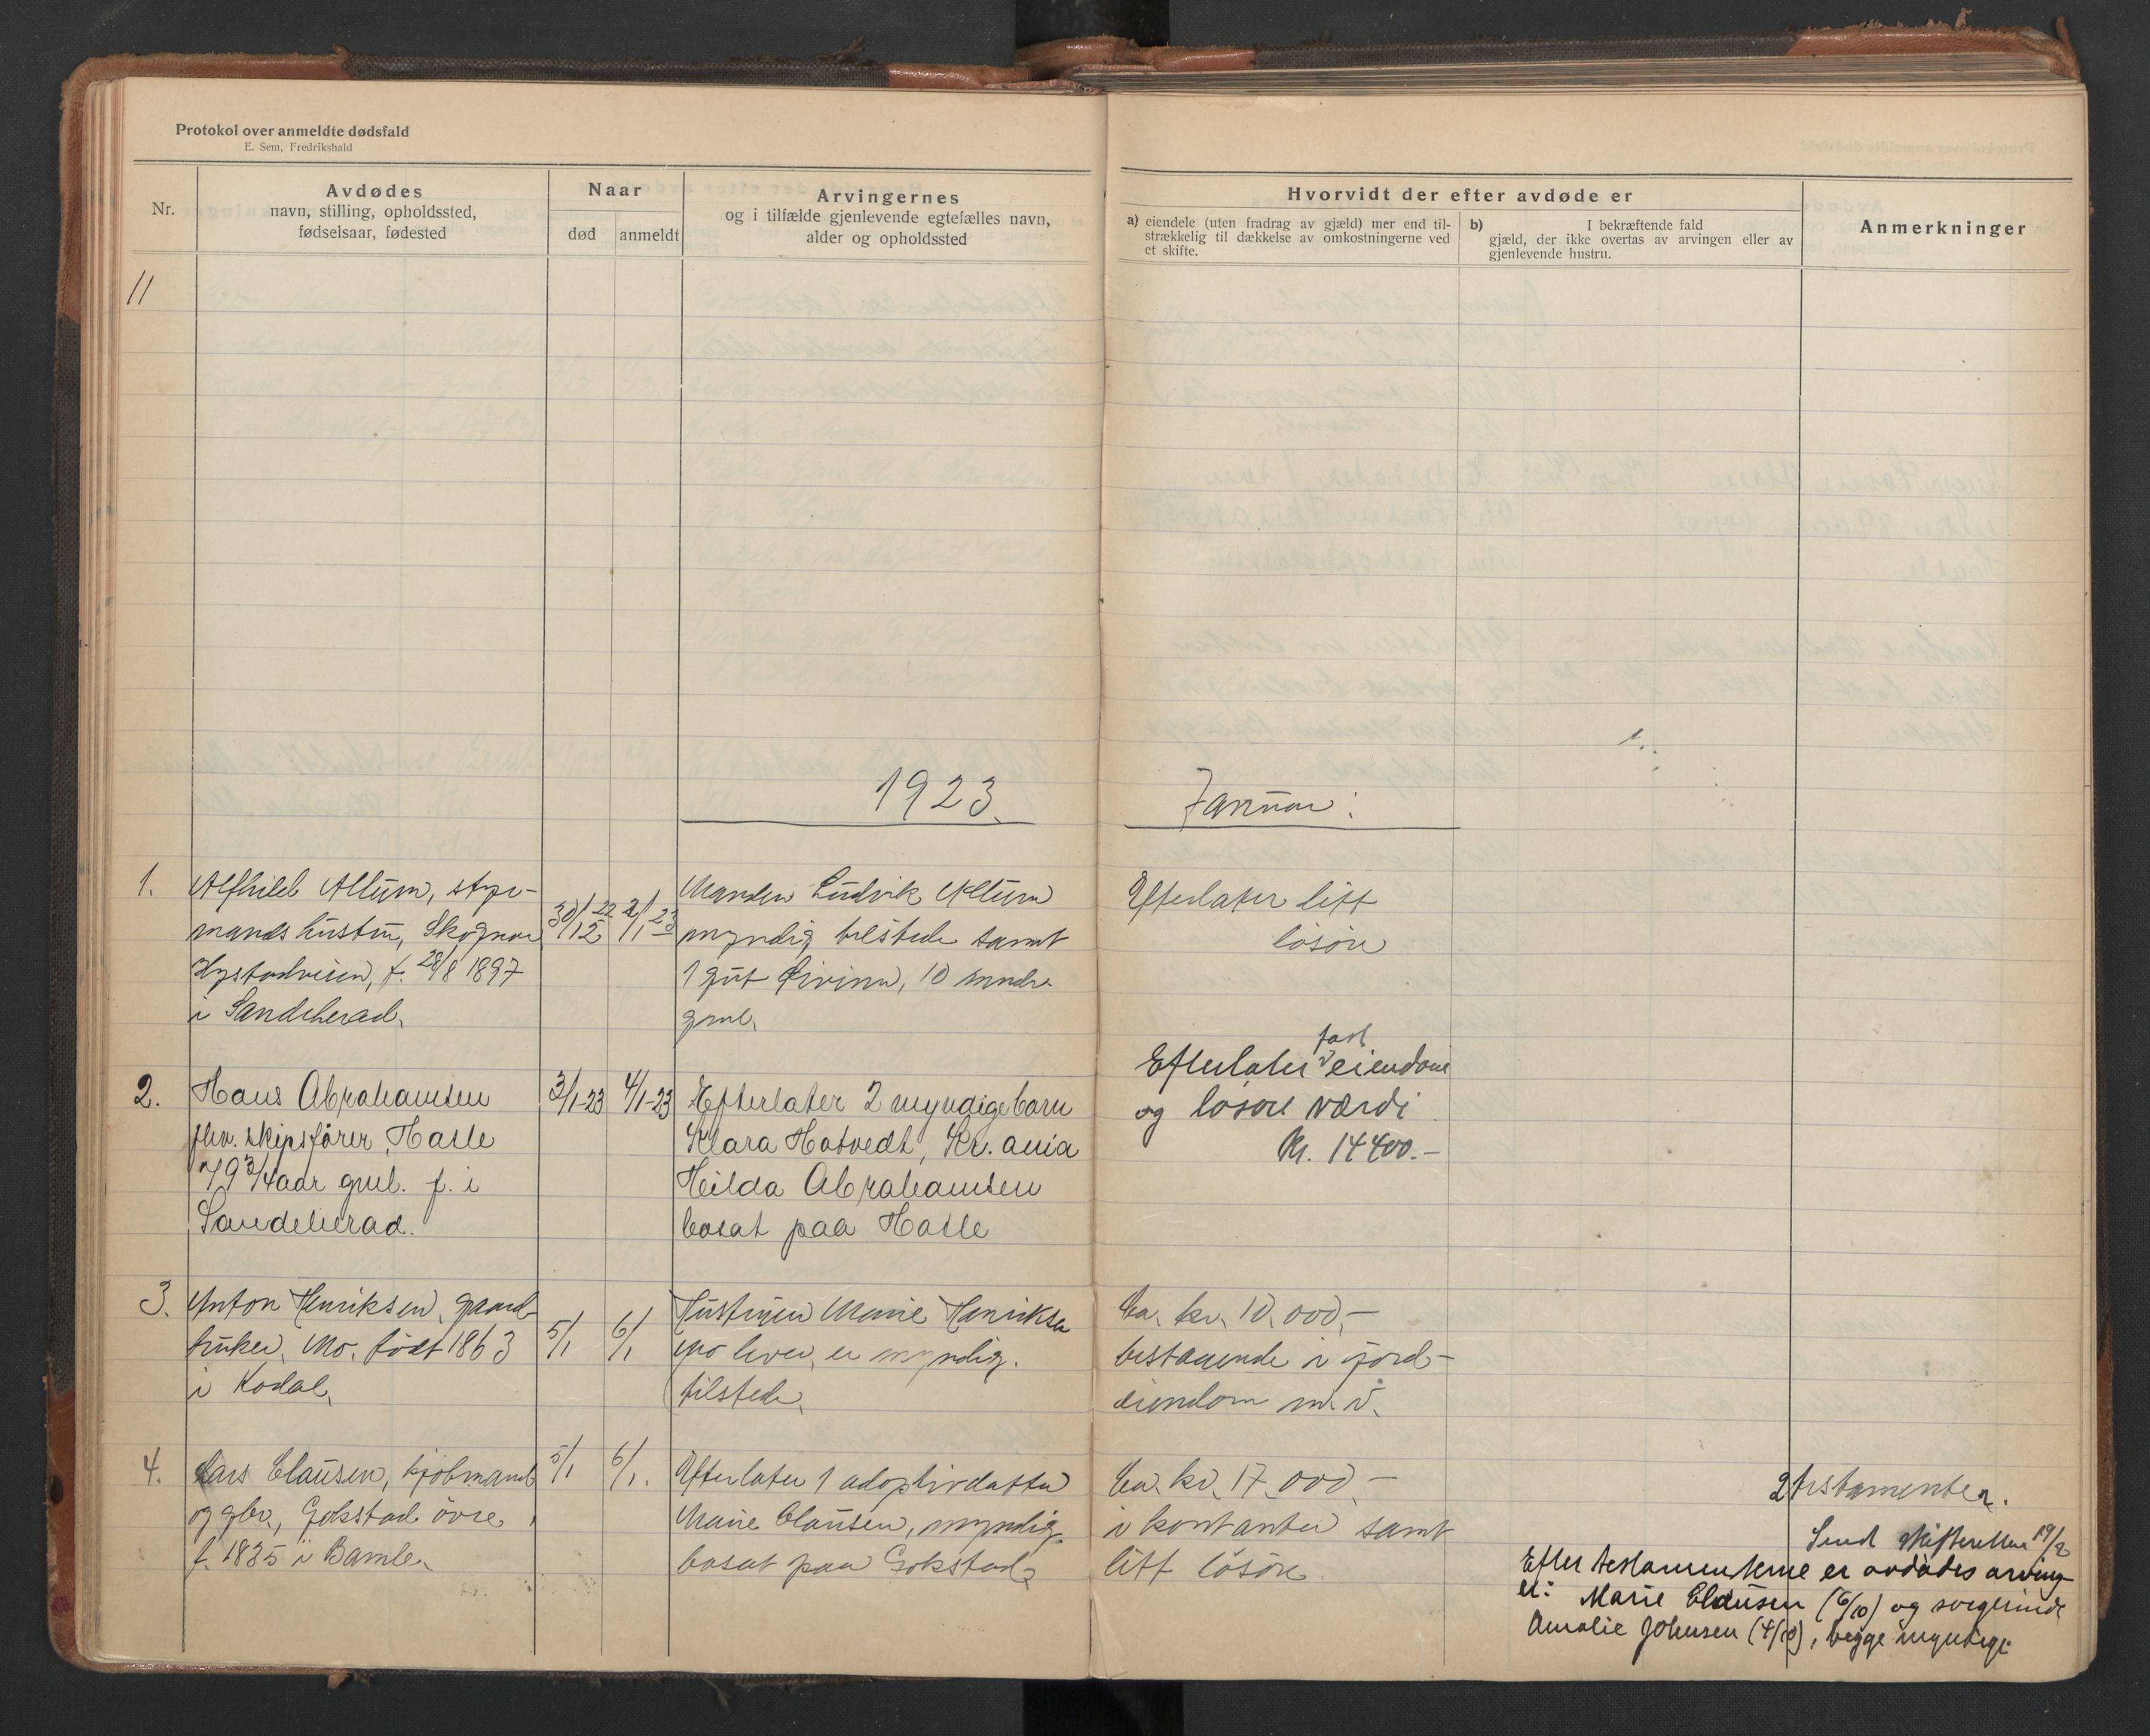 Protokol over anmeldte dødsfald
E. Sem, Fredrikshald
Nr.
Avdødes
navn, stilling, opholdssted,
fødselsaar, fødested
Naar
død
anmeldt
Arvingernes
og i tilfælde gjenlevende egtefælles navn,
alder og opholdssted
Hvorvidt der efter avdøde er
a) eiendele (uten fradrag av gjæld) mer end til-
strækkelig til dækkelse av omkostningerne ved
et skifte.
b) I bekræftende fald
gjæld, der ikke overtas av arvingen eller av
gjenlevende hustru.
Anmerkninger
11
1923.
Januar:
1.
Alfhild Allum, styr-
mands hustru, Skognar
Hystadveien, f. 28/8 1897
i Sandeherad.
30/12-22
2/1-23
Manden Ludvik Allum
myndig tilstede samt
1 gut Eivinn, 10 mndr.
gml.
Efterlater litt
løsøre
2.
Hans Abrahamsen
fhv. skipsfører, Hasle
79 3/4 aar gml. f. i
Sandeherad.
3/1-23
4/1-23
Efterlater 2 myndige barn
Klara Hotvedt, Kr.ania
Hilda Abrahamsen
bosat paa Hasle
fast
Efterlater eiendom
og løsøre værdi
Kr. 14400.-
3.
Anton Henriksen, gaard-
bruker, Mo. født 1863
i Kodal.
5/1
6/1
Hustruen Marie Henriksen
Mo lever, er myndig.
tilstede.
Ca. kr. 10.000,-
bestaaende i jord-
eiendom m.v.
4.
Lars Clausen, kjøbmand
og gbr., Gokstad øvre,
f. 1835 i Bamle.
5/1
6/1.
Efterlater 1 adoptivdatter
Marie Clausen, myndig,
bosat paa Gokstad.
Ca. kr. 17.000.-
i kontanter samt
litt løsøre.
2 testamenter.
Send skifteretten 19/2
Efter testamenterne er avdødes arving-
er: Marie Clausen (6/10) og svigerinde
Amalie Johnsen (4/10), begge myndige.